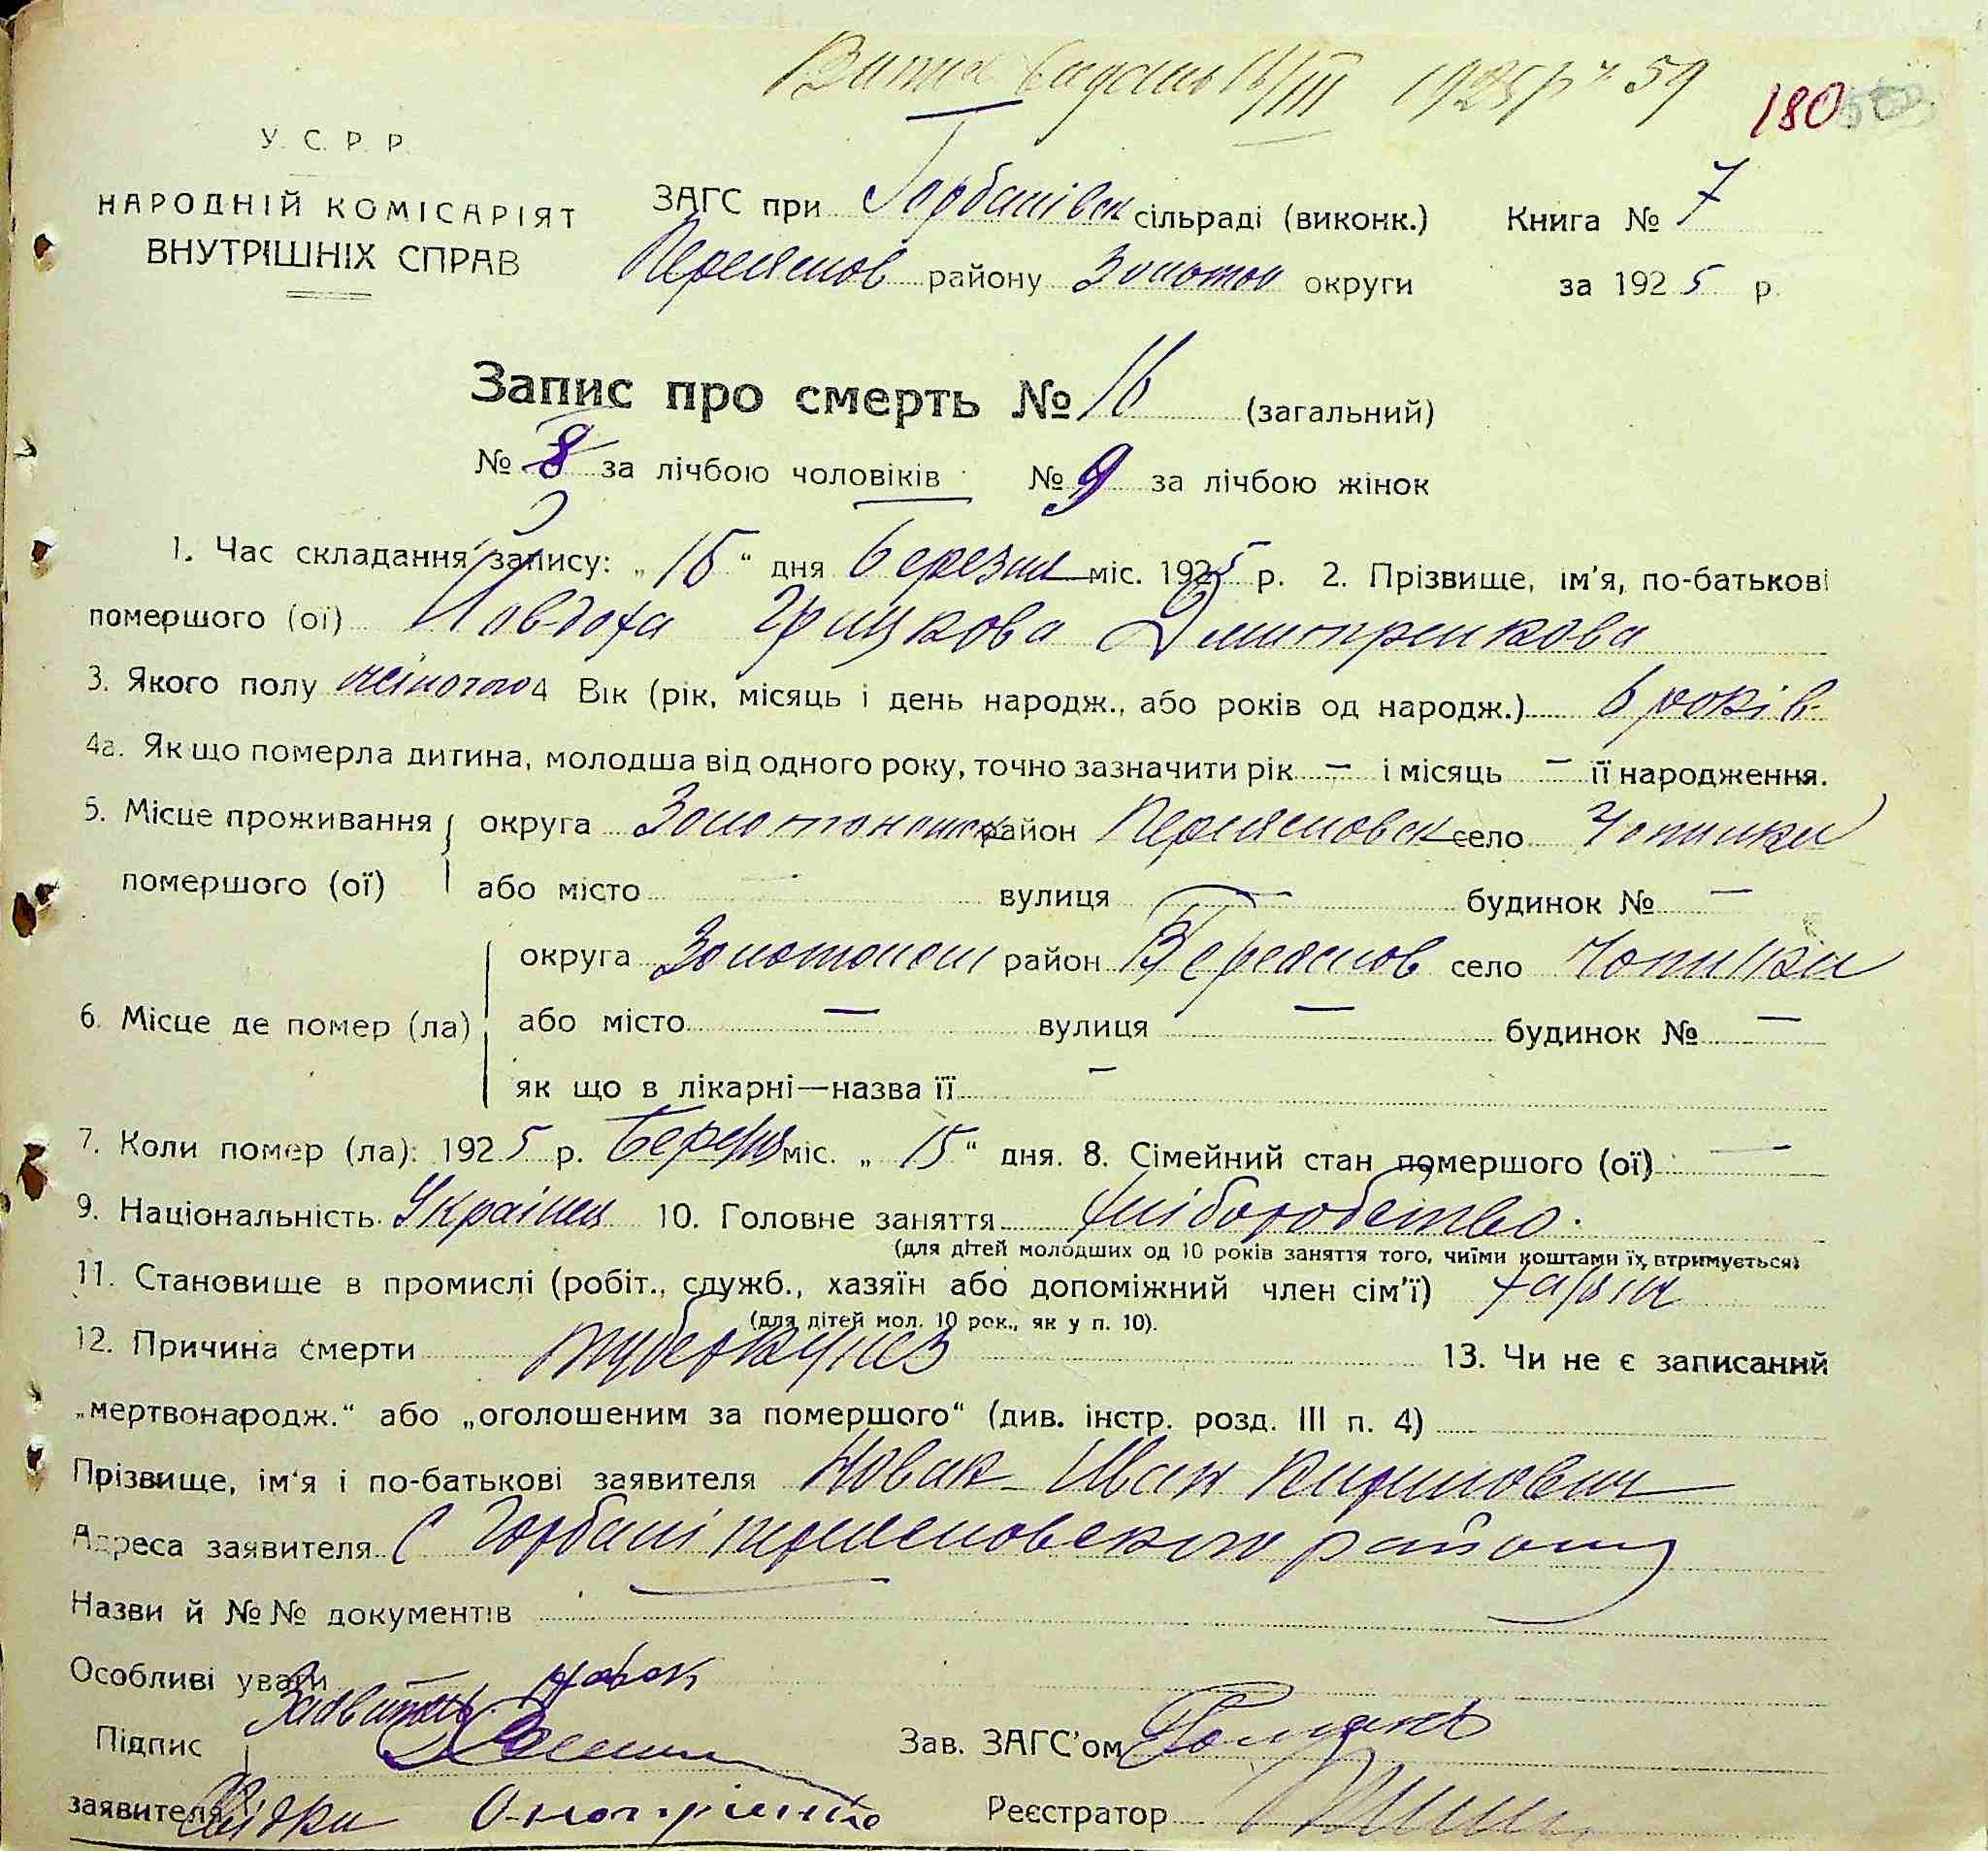 Витяг видань 16/III 1925 р № 59
180
У. С. Р. Р.
НАРОДНІЙ КОМІСАРІЯТ
ВНУТРІШНІХ СПРАВ
ЗАГС при Горбанівск сільраді (виконк.) Книга № 7
Переяслов району Золотон округи за 1925 р.
Запис про смерть № 16 (загальний)
№ 8 за лічбою чоловіків № 9 за лічбою жінок
1. Час складання запису: „16“ дня березня міс. 1925 р. 2. Прізвище, ім'я, по-батькові
помершого (ої) Йовдоха Грицкова Дмитренкова
3. Якого полу жіночого 4 Вік (рік, місяць і день народж., або років од народж.) 6 років
4а. Як що померла дитина, молодша від одного року, точно зазначити рік — і місяць — її народження.
5. Місце проживання округа Золотоношск район Переясловск село Чопилки
помершого (ої) або місто вулиця — будинок № —
округа Золотонош район Переяслов село Чопилки
6. Місце де помер (ла) або місто — вулиця — будинок № —
як що в лікарні—назва її —
7. Коли помер (ла): 1925 р. Березня міс. „15“ дня. 8. Сімейний стан помершого (ої) —
9. Національність Українка 10. Головне заняття хліборобство.
(для дітей молодших од 10 років заняття того, чиїми коштами їх втримується)
11. Становище в промислі (робіт., служб., хазяїн або допоміжний член сім'ї) хазяін
(для дітей мол. 10 рок., як у п. 10).
12. Причина смерти туберкульоз 13. Чи не є записаний
„мертвонародж.“ або „оголошеним за помершого“ (див. інстр. розд. III п. 4)
Прізвище, ім'я і по-батькові заявителя Новак Иван Кирилович
Адреса заявителя С Горбані переясловского району
Назви й №№ документів
Особливі уваги
Заявитель Новак
Підпис Зав. ЗАГС'ом
заявителя Свідки Онопрієнко Реєстратор